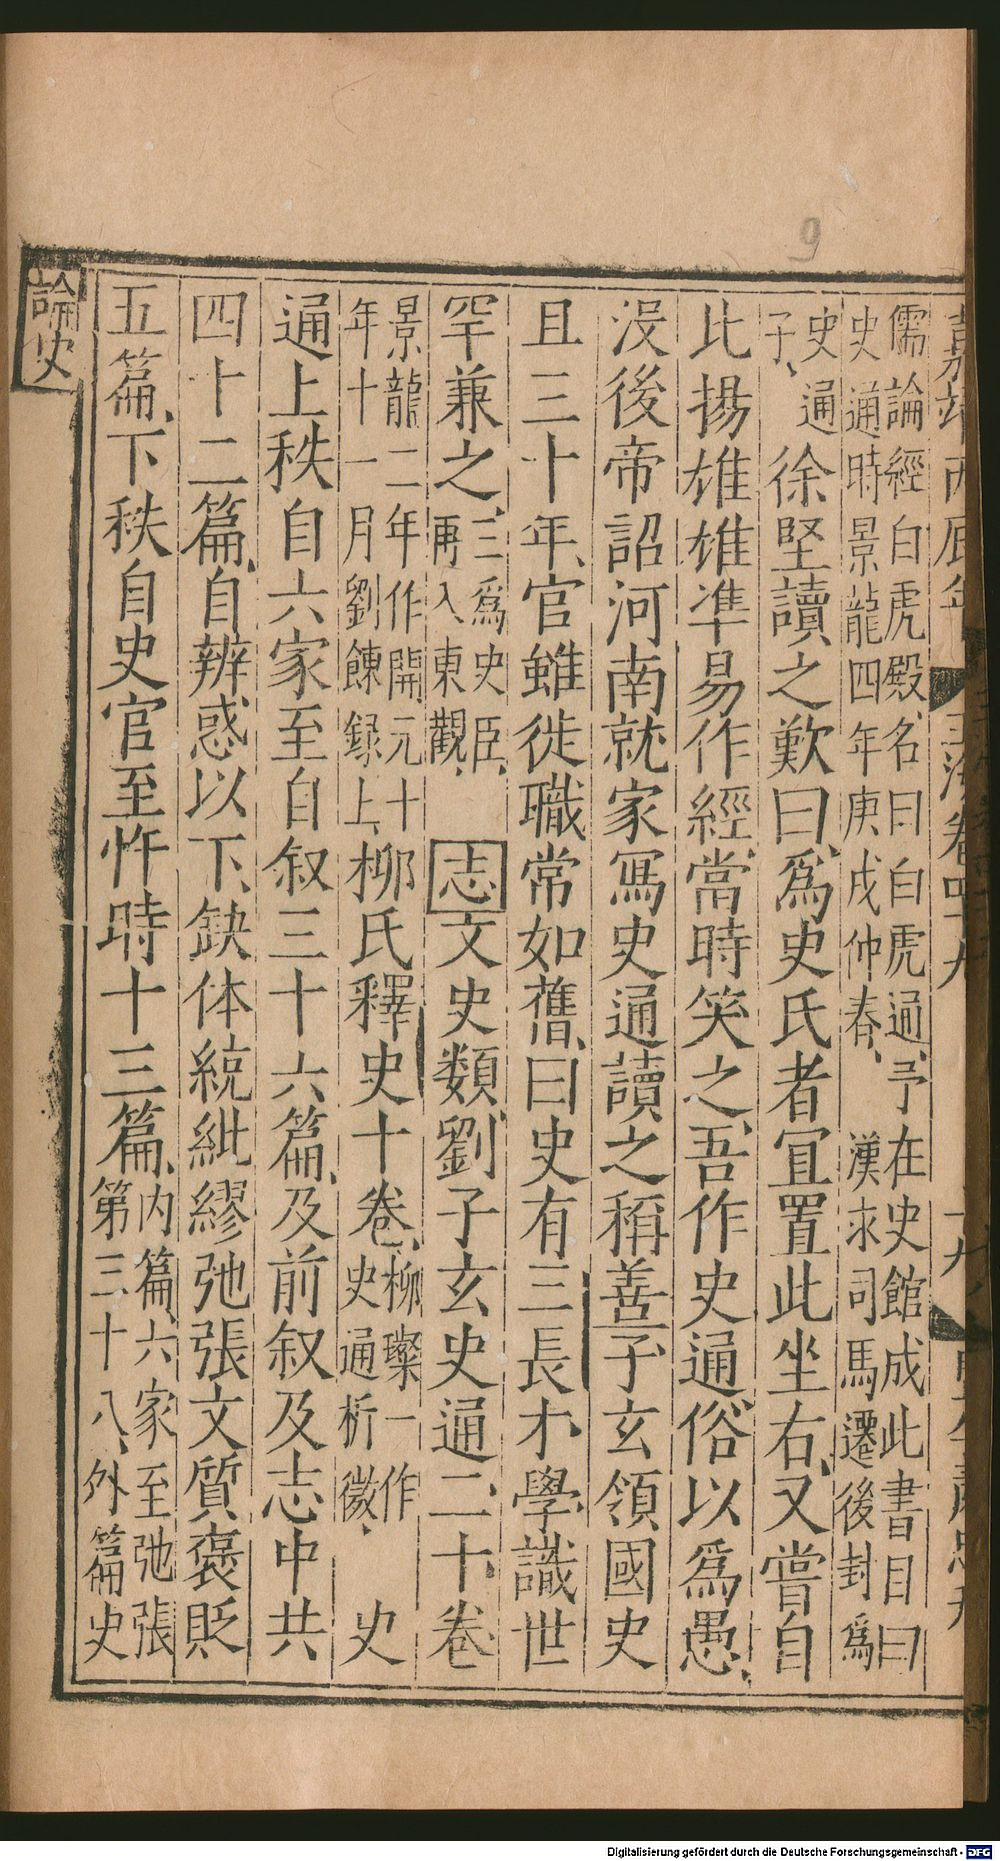 嘉靖丙辰年
玉海卷四十九
儒論經白虎殿名曰白虎通予在史館成此書目曰
史通時景龍四年庚戌仲春、漢求司馬遷後封爲
史通
子、
徐堅讀之歎曰、爲史氏者宜置此坐右、又嘗自
比揚雄雄準易作經、當時笑之、吾作史通、俗以爲愚、
沒後帝詔河南就家寫史通讀之稱善、子玄領國史
且三十年、官雖徙職常如舊、曰史有三長才學識世
罕兼之、
三爲史臣、
再入東觀、
志文史類劉子玄史通二十卷
景龍二年作開元十
年十一月劉餗録上、
柳氏釋史十卷、
柳璨一作
史通析微、
史
通上秩自六家至自叙三十六篇、及前叙及志中共
四十二篇、自辨惑以下、缺体統紕繆弛張文質褒貶
五篇、下秩自史官至忤時十三篇、
内篇六家至弛張
第三十八、外篇史
論史
9
Digitalisierung gefördert durch die Deutsche Forschungsgemeinschaft - DFG